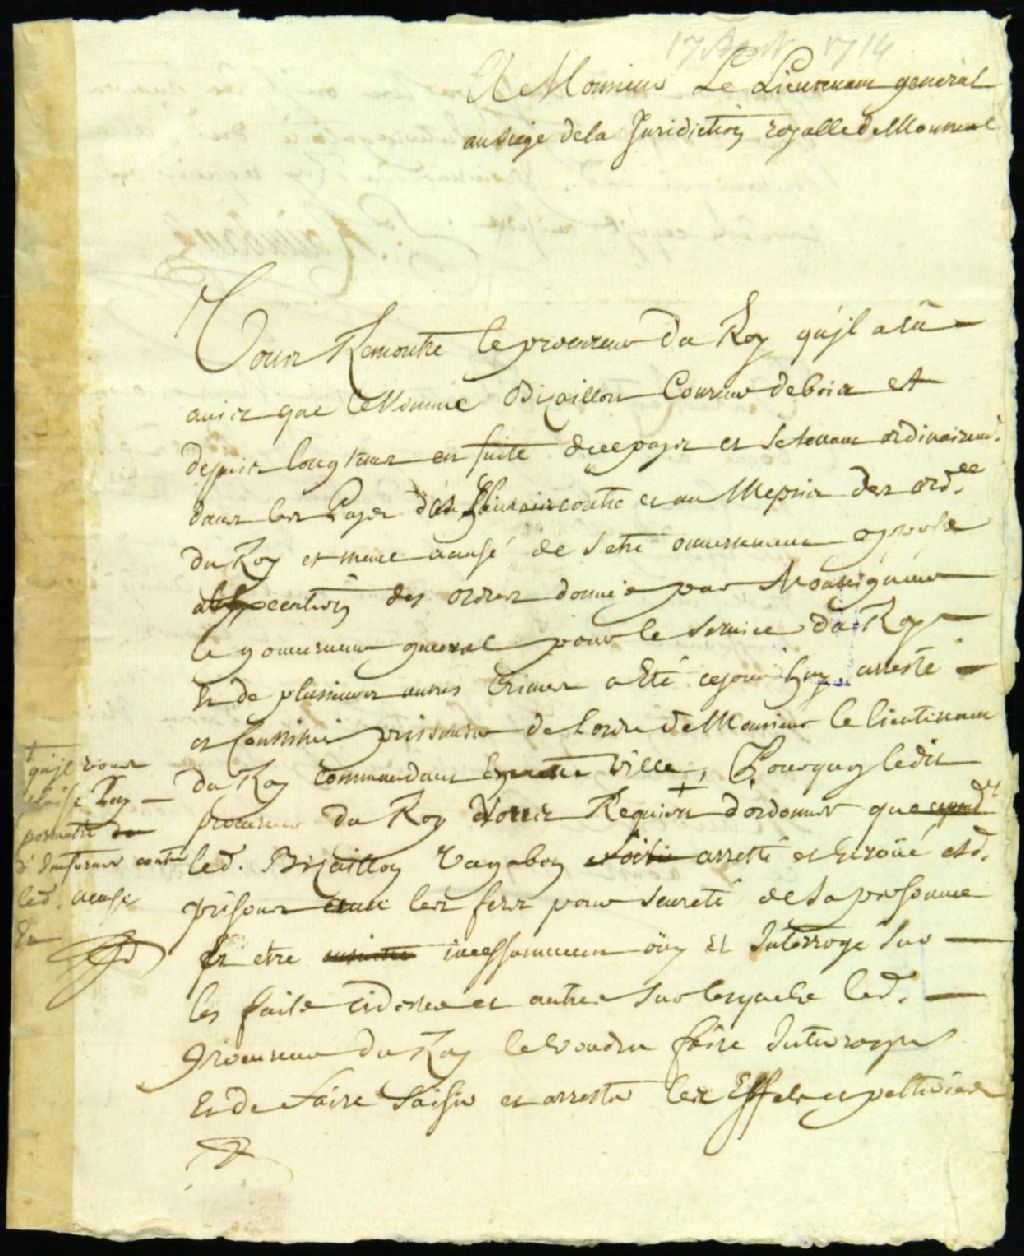 17 Aout 1714
A Monsieur Le Lieutenant general
au siege de la Juridiction royalle de Montreal
Vous Remontre le procureur du Roy qu'jl a eû
avis que le Nommé Bizaillon Coureur de bois et
depuis longtems en fuite de ce pays et se tenant ordinairemt.
dans les Pays contre et au Mepris des ord.ces
du Roy et meme accusé de s'etre ouvertement oposé a
l'execution des ordres donnés par Monseigneur
le gouverneur general pour le service du Roy
Et de plusieurs autres Crimes a Eté cejourd'huy arresté
et Constitué prisonnier de L'ordre de Monsieur le lieutenant
du Roy commandant En cette Ville, Pourquoy ledit
procureur du Roy Vous Requiert + d'ordonner que
led. Bizaillon Vagabon soit arresté et Ecroüé esd.
prisons avec les fers pour seureté de sa personne
Et etre incessamment oüy Et Interrogé sur
les faits cidessus et autres sur lesquels led.
Procureur du Roy le voudra faire Interroger
Et de faire saisir et arrester les Effets et pelteries
+
qu'jl vous
plaise luy
permettre
d'Informer contre
led. accusé
Et